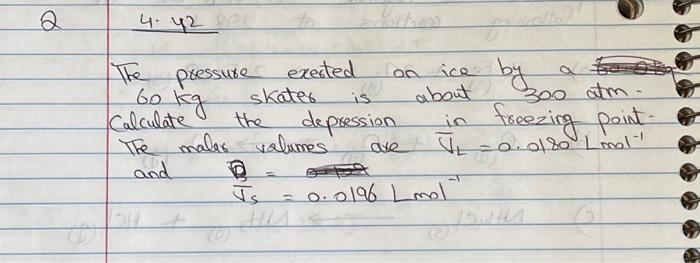 Q 4.42
The pressure exerted on ice by a
60 kg skater is about 300 atm.
Calculate the depression in freezing point.
The molar volumes are V̅L = 0.0180 L mol⁻¹
and
V̅s = 0.0196 L mol⁻¹